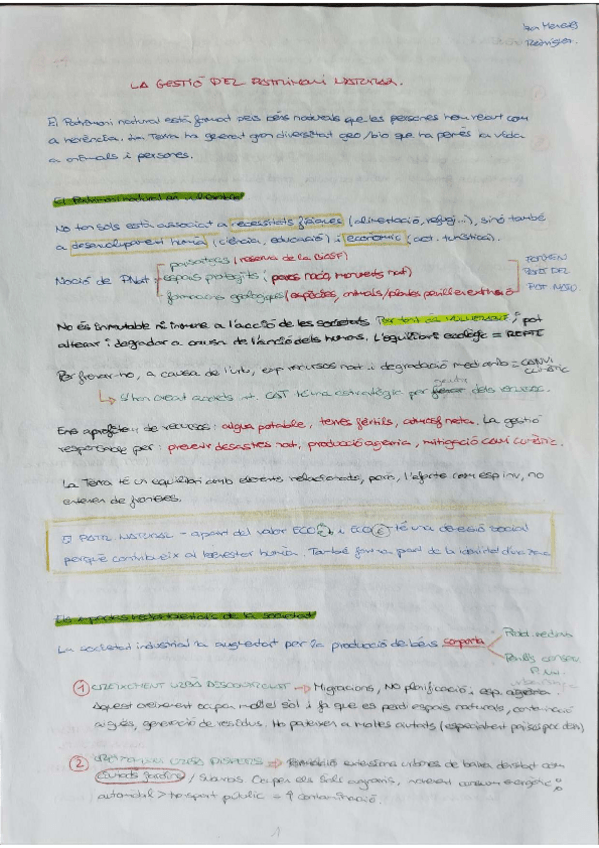 LA GESTIÓ DEL PATRIMONI NATURAL.
El Patrimoni natural està format pels béns naturals que les persones hem rebut com
a herència. La Terra ha generat gran diversitat geo/bio que ha permès la vida
a animals i persones.
El Patrimoni natural
No tan sols està associat a necessitats físiques (alimentació, refugi...), sinó també
a desenvolupament humà (ciència, educació) i econòmic (act. turística).
Noció de PNat
paisatges (reserva de la BIOSF)
espais protegits (parcs nac,
formacions geològiques (espècies, animals/plantes perill extinció
FORMEN
PART DEL
PAT
No és inmutable ni inmune a l'acció de les societats Per tant és i pot
alterar i degradar a causa de l'acció dels humans. L'equilibri ecològic =
Per frenar-ho, a causa de l'urb, exp recursos nat. i degradació mediamb = CANVI
CLIMÀTIC
S'han creat acords int. CAT té una estratègia per dels
Ens aprofitem de recursos: aigua potable, terres fèrtils, La gestió
responsable per: prevenir desastres nat, producció agrària, mitigació canvi climàtic.
La Terra té un equilibri amb elements relacionats, però, l'aforte com esp inv, no
entenen de fronteres.
El PATR. NATURAL - apart del valor ECO i ECO té una dimensió social
perquè contribueix al benestar humà. També forma part de la identitat d'una
de la societat
La societat industrial ha augmentat per la producció de béns comporta
① CREIXEMENT URBÀ DESCONTROLAT → Migracions, NO planificació i exp.
Aquest creixement ocupa molt el sòl i fa que es perdi espais naturals, contaminació
aigües, generació de residus. Ho pateixen a moltes ciutats (especialment països
② URBÀ DISPERS → extensions urbanes de baixa densitat com
ciutats jardins / suburbis. Ocupen els sòls agraris, consum energètic
automòbil > transport públic = ↑ contaminació.
1